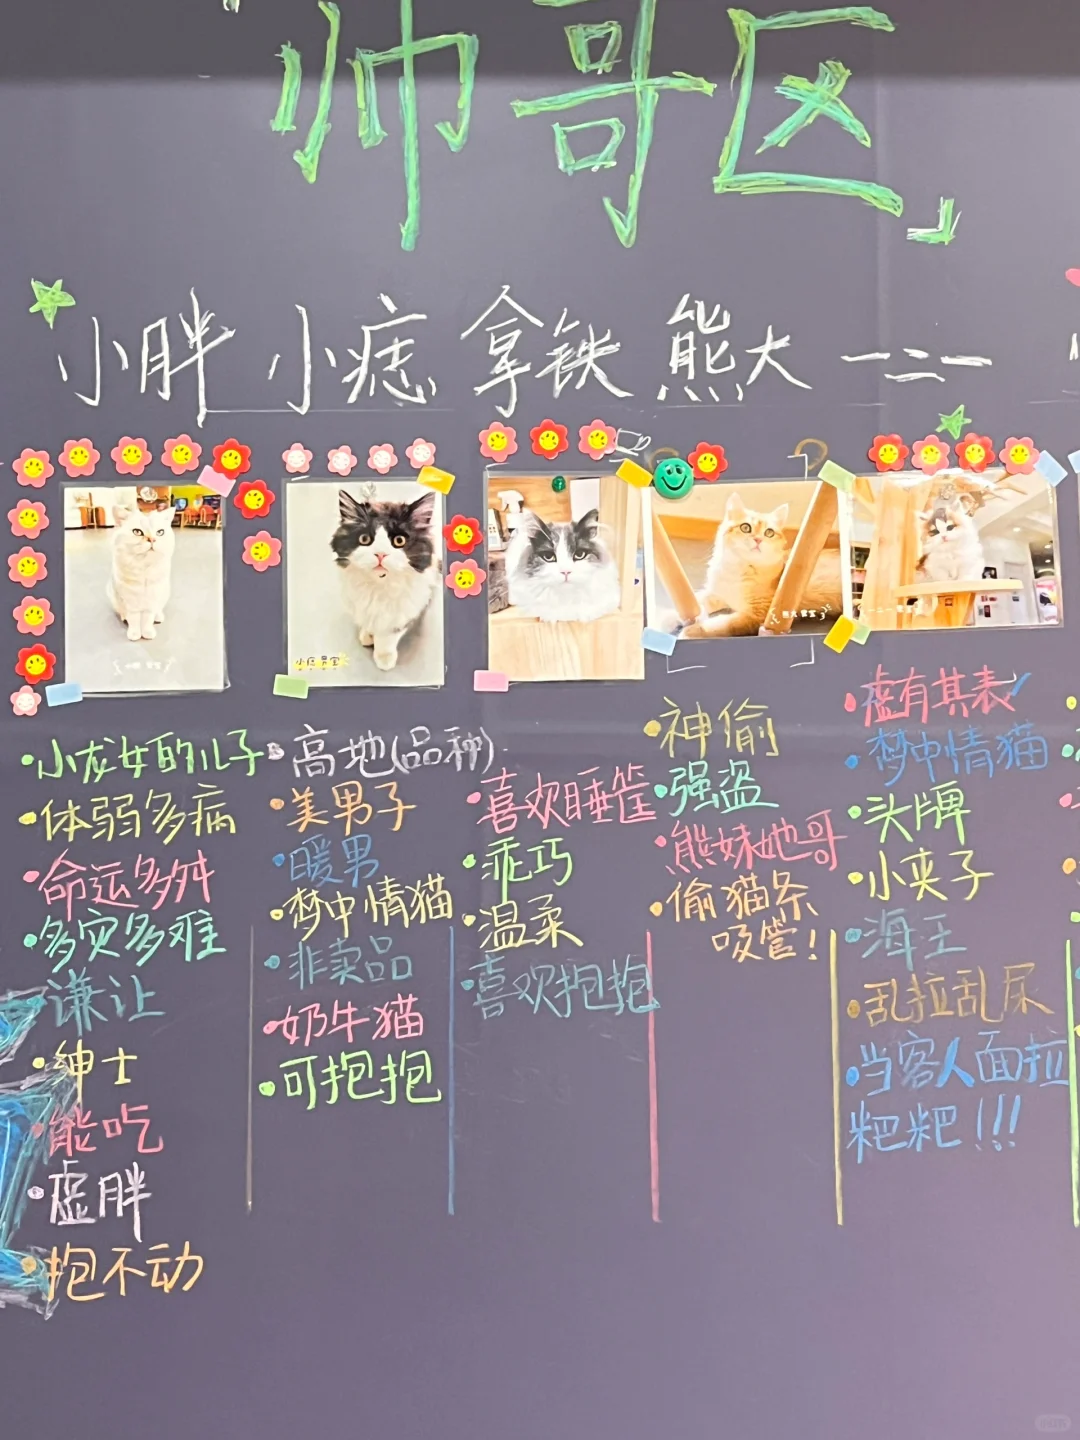 「帅哥区」
小胖 小痣 拿铁 熊大 一二一
小痣
·小龙女的儿子
·体弱多病
·命运多舛
·多灾多难
·谦让
·绅士
·能吃
·虚胖
·抱不动
·高地(品种)
·美男子
·暖男
·梦中情猫
·非卖品
·奶牛猫
·可抱抱
·喜欢睡筐
·乖巧
·温柔
·喜欢抱抱
·神偷
·强盗
·熊妹她哥
·偷猫条
吸管!
·虚有其表
·梦中情猫
·头牌
·小夹子
·海王
·乱拉乱尿
·当客人面拉
粑粑!!!